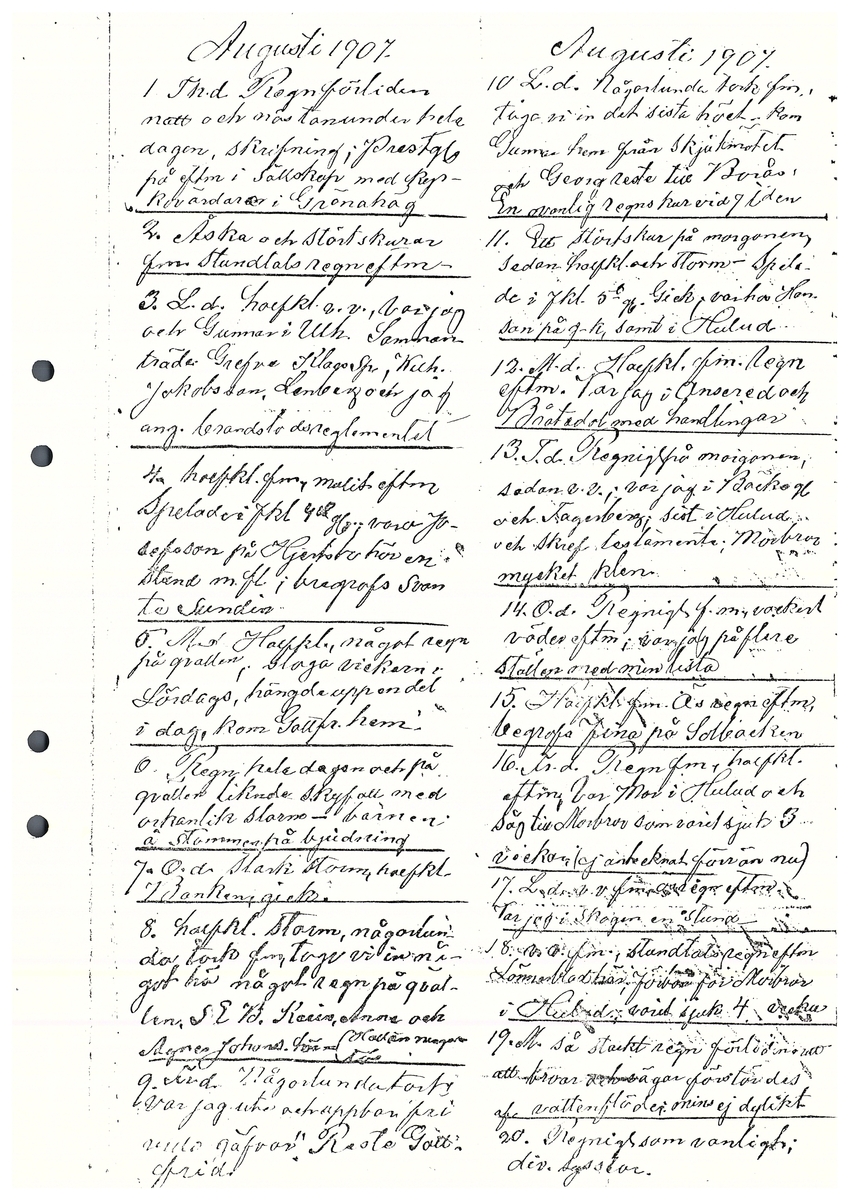 Augusti 1907.
1 Th.d. Regn förliden
natt och nästan under hela
dagen, skrifning i Prestg
på eftm i sällskap med Kyr-
kovärdaren i Grönahag
2. Åska och störtskurar
fm. stundtals regn eftm
3. L.d. halfkl. v.v., var jag
och Gunnar i Uh. Samman
trädde Grefve Klagesp,
Jakobsson, Lenberg och jag
ang. brandstodsreglementet
4. halfkl. fm, mulit eftm
Spelade i fkl vara Jo-
sefsson på här en
stund m.fl; begrofs Svan
te Sundin
5. M.d Halfkl., något regn
på qvällen, sloga vickern i
Lördags, hängde upp en del
i dag, kom Gottfr. hem
6. Regn hela dagen och på
qvällen liknde skyfall med
orkanlik storm - barnen
å Stommen på bjudning
7. O.d. Stark storm, halfkl.
Banken gick.
8. halfkl. storm, någorlun
da tork fm, togo vi in nå-
got hö något regn på qväl-
len, S E B. Karin, Anna och
Agnes Johans. här
9. Fr.d. Någorlunda tork,
var jag ute och uppbar fri
Reste Gott-
frid.
Augusti 1907.
10 L.d. Någorlunda tork fm.,
togo vi in det sista höet - kom
Gunnar hem från skjutmötet
och Georg reste till Borås.
En ovanlig regnskur vid 7 tiden
11. Ett störtskur på morgonen,
sedan halfkl. och storm - Spela-
de i fkl. Gick, var hos Han-
son på g-k, samt i Hulud
12. M.d. Halfkl. fm. Regn
eftm. Var jag i Ansered och
Bråtadal med handlingar
13. T.d. Regnigt på morgonen,
sedan v.v.; var jag i Backa
och Fagerberg; sist i Hulud
och skref testamente; Morbror
mycket klen
14. O.d. Regnigt f.m, vackert
väder eftm; var jag på flere
ställen med min lista
15. Halfkl fm. Ås regn eftm,
begrofs Fina på Solbacken
16. Fr.d. Regn fm, halfkl.
eftm, var Mor i Hulud och
såg till Morbror som varit sjuk 3
veckor, (ej antecknat förrän nu)
17. L.d. v.v fm, regn eftm.
Var jag i skogen en stund
18. v.v. fm., stundtals regn eftm
förbön för Morbror
i Hulud; varit sjuk 4 veckor
19. M. så starkt regn förliden natt
att broar och vägar förstördes
af vattenflöde; minns ej dylikt
20. Regnigt som vanligt;
div. sysslor.